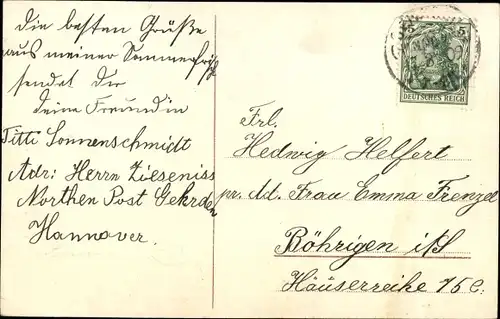 Die besten Grüße
aus meiner Sommerfrische
sendet Dir
deine Freundin
Titti Sonnenschmidt
Adr: Herrn Zieseniss
Northen Post Gehrden
Hannover.
5 5
DEUTSCHES REICH
Frl.
Hedwig Helfert
pr. Ad. Frau Emma Frenzel
Röhrigen i/S
Häuserreihe 75c.